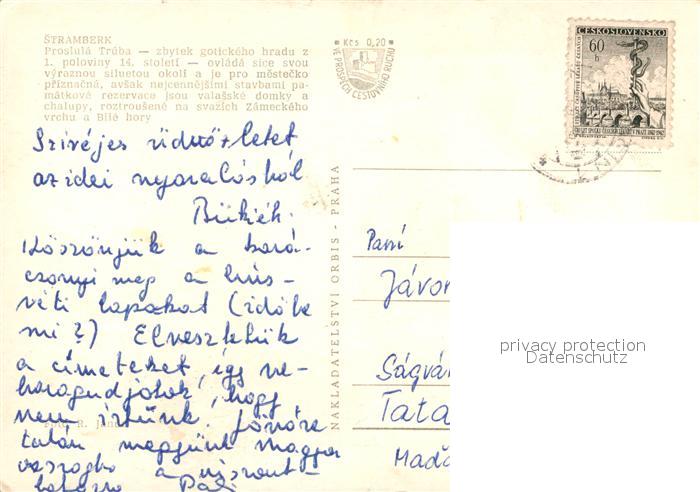 ŠTRAMBERK
Proslulá Trúba — zbytek gotického hradu z
1. poloviny 14. století — ovládá sice svou
výraznou siluetou okolí a je pro městečko
příznačná, avšak nejcennějšími stavbami pa-
mátkové rezervace jsou valašské domky a
chalupy, roztroušené na svazích Zámeckého
vrchu a Bílé hory
Kčs 0,20
VE PROSPĚCH CESTOVNÍHO RUCHU
ČESKOSLOVENSKO
60
h
Szívéjes üdvözletet
az idei nyaralásból
Bükiék.
Köszönjük a kará-
csonyi meg a hús-
véti lapokat (idő be
mi?) Elvesztük
a címeteket, így ne
haragudjatok, hogy
nem írtunk. Jövőre
talán megyünk Magyar
országba a viszont-
Pali
NAKLADATELSTVÍ ORBIS - PRAHA
Paní
Jávor
Ságvár
Tata
Maďa
privacy protection
Datenschutz